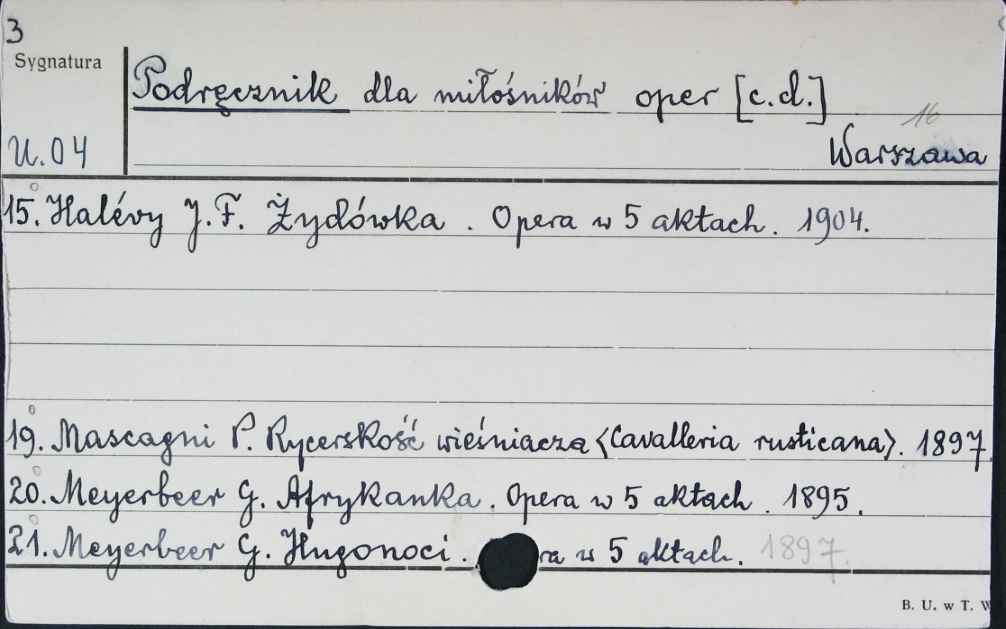 3
Sygnatura
Podręcznik dla miłośników oper [c.d.]
16
U.04
Warszawa
15. Halévy J.F. Żydówka. Opera w 5 aktach. 1904.
19. Mascagni P. Rycerskość wieśniacza <Cavalleria rusticana>. 1897
20. Meyerbeer G. Afrykanka. Opera w 5 aktach. 1895.
21. Meyerbeer G. Hugonoci. ra w 5 aktach. 1897.
B. U. w T. W